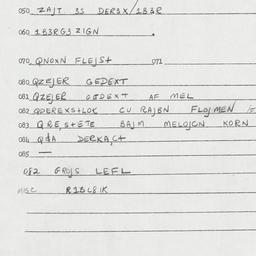 050 ZAJT 3S DER3X/1B3R
060 1B3RG3 ZIGN
070 QNOXN FLEJS+ 071
080 QZEJER GEDEXT
081 QZEJER GEDEXT AF MEL
082 QDEREXS+LOK CU RAJBN FLOJMEN
083 QRE,S+E+E BAJM MELOJCN KORN
084 Q+A DERKA,C+
085 —
082 GROJS LEFL
MISC R1BL8IK